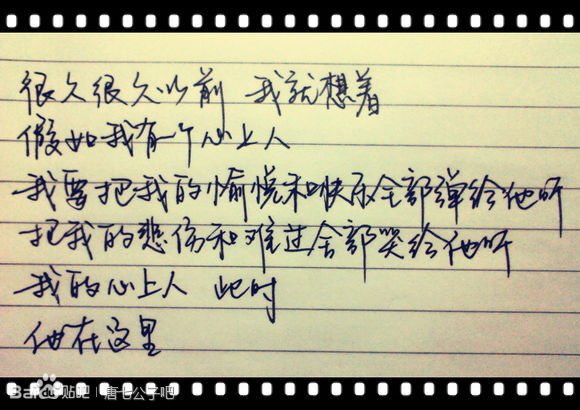 很久很久以前 我就想着
假如我有一个心上人
我要把我的愉悦和快乐全部弹给他听
把我的悲伤和难过全部哭给他听
我的心上人 此时
他在这里
Bai 贴吧 | 唐七公子吧